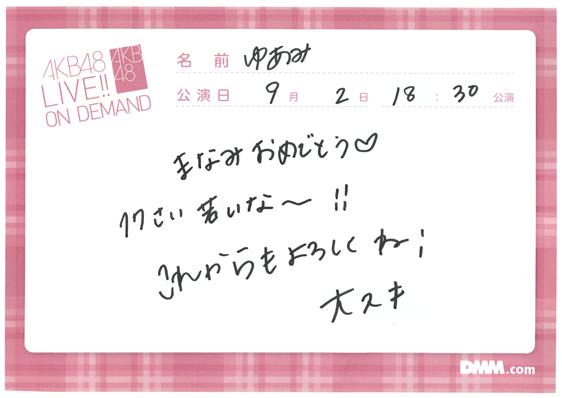 AKB48
LIVE!!
ON DEMAND
AKB
48
名前 ゆあみ
公演日 9月 2日 18:30 公演
まなみおめでとう♡
17さい 若いな〜!!
これからもよろしくね!
大スキ
DMM.com